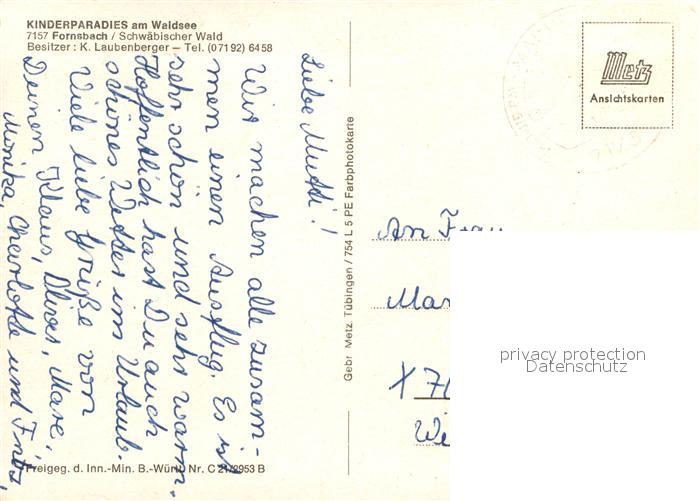 KINDERPARADIES am Waldsee
7157 Fornsbach / Schwäbischer Wald
Besitzer : K. Laubenberger — Tel. (07192) 6458
Liebe Mutti!
Wir machen alle zusam-
men einen Ausflug. Es ist
sehr schön und sehr warm.
Hoffentlich hast Du auch
schönes Wetter im Urlaub.
Viele liebe Grüße von
Deinen Klaus, Oliver, Marc,
Monika, Charlotte und Fritz,
Freigeg. d. Inn.-Min. B.-Württ. Nr. C 21/2953 B
Gebr. Metz, Tübingen / 754 L 5 PE Farbphotokarte
Metz
Ansichtskarten
An Frau
Mar
X 71
Wi
privacy protection
Datenschutz